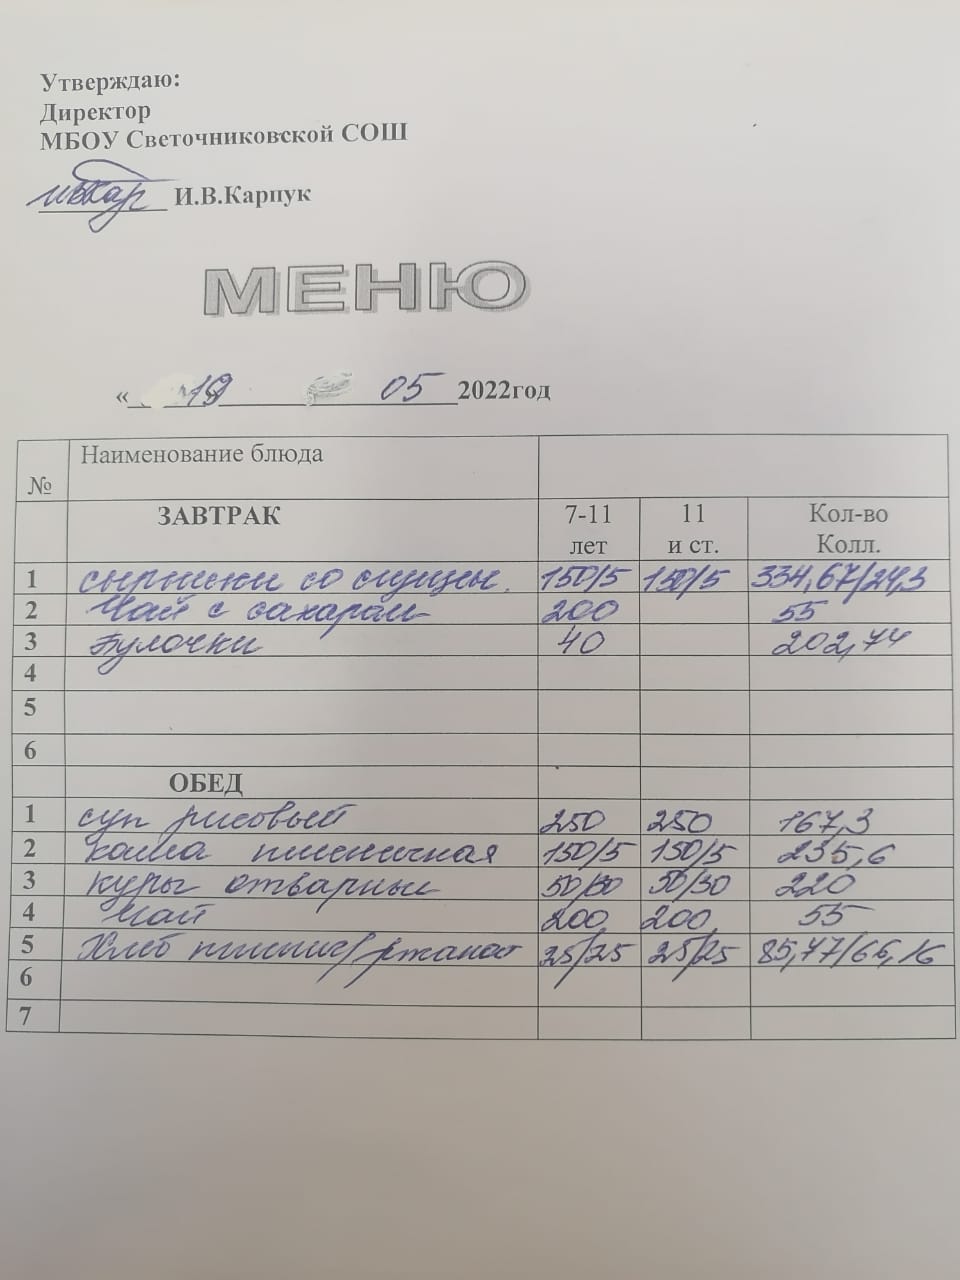 Утверждаю:
Директор
МБОУ Светочниковской СОШ
И.В.Карпук
МЕНЮ
« 19 05 2022год
№ Наименование блюда
ЗАВТРАК 7-11 лет 11 и ст. Кол-во Колл.
1 сырники со сгущен. 150/5 150/5 334,67/24,3
2 Чай с сахаром 200 55
3 Булочки 40 202,74
4
5
6
ОБЕД
1 суп рисовый 250 250 167,3
2 каша пшеничная 150/5 150/5 235,6
3 куры отварные 50/30 50/30 220
4 Чай 200 200 55
5 Хлеб пшенич/ржаной 25/25 25/25 85,77/66,16
6
7